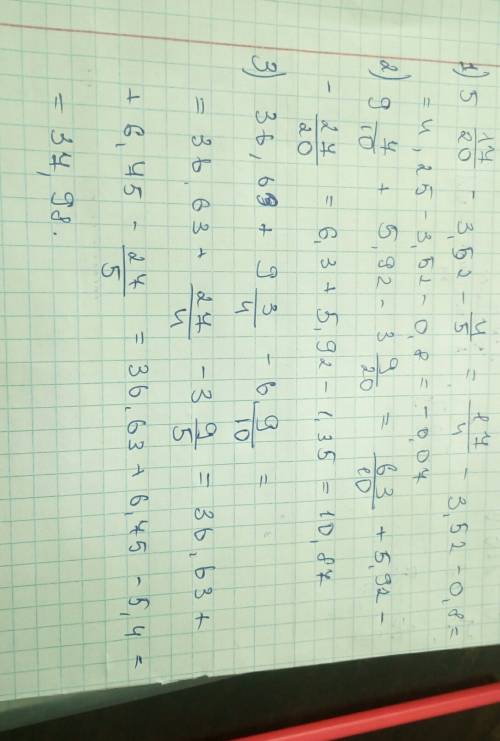 1) 5 17/20 - 3,52 - 4/5 = 17/4 - 3,52 - 0,8 =
= 4,25 - 3,52 - 0,8 = -0,07
2) 9 7/10 + 5,92 - 3 9/20 = 63/10 + 5,92 -
- 27/20 = 6,3 + 5,92 - 1,35 = 10,87
3) 36,63 + 9 3/4 - 6 9/10 =
= 36,63 + 27/4 - 3 9/5 = 36,63 +
+ 6,75 - 27/5 = 36,63 + 6,75 - 5,4 =
= 37,98.